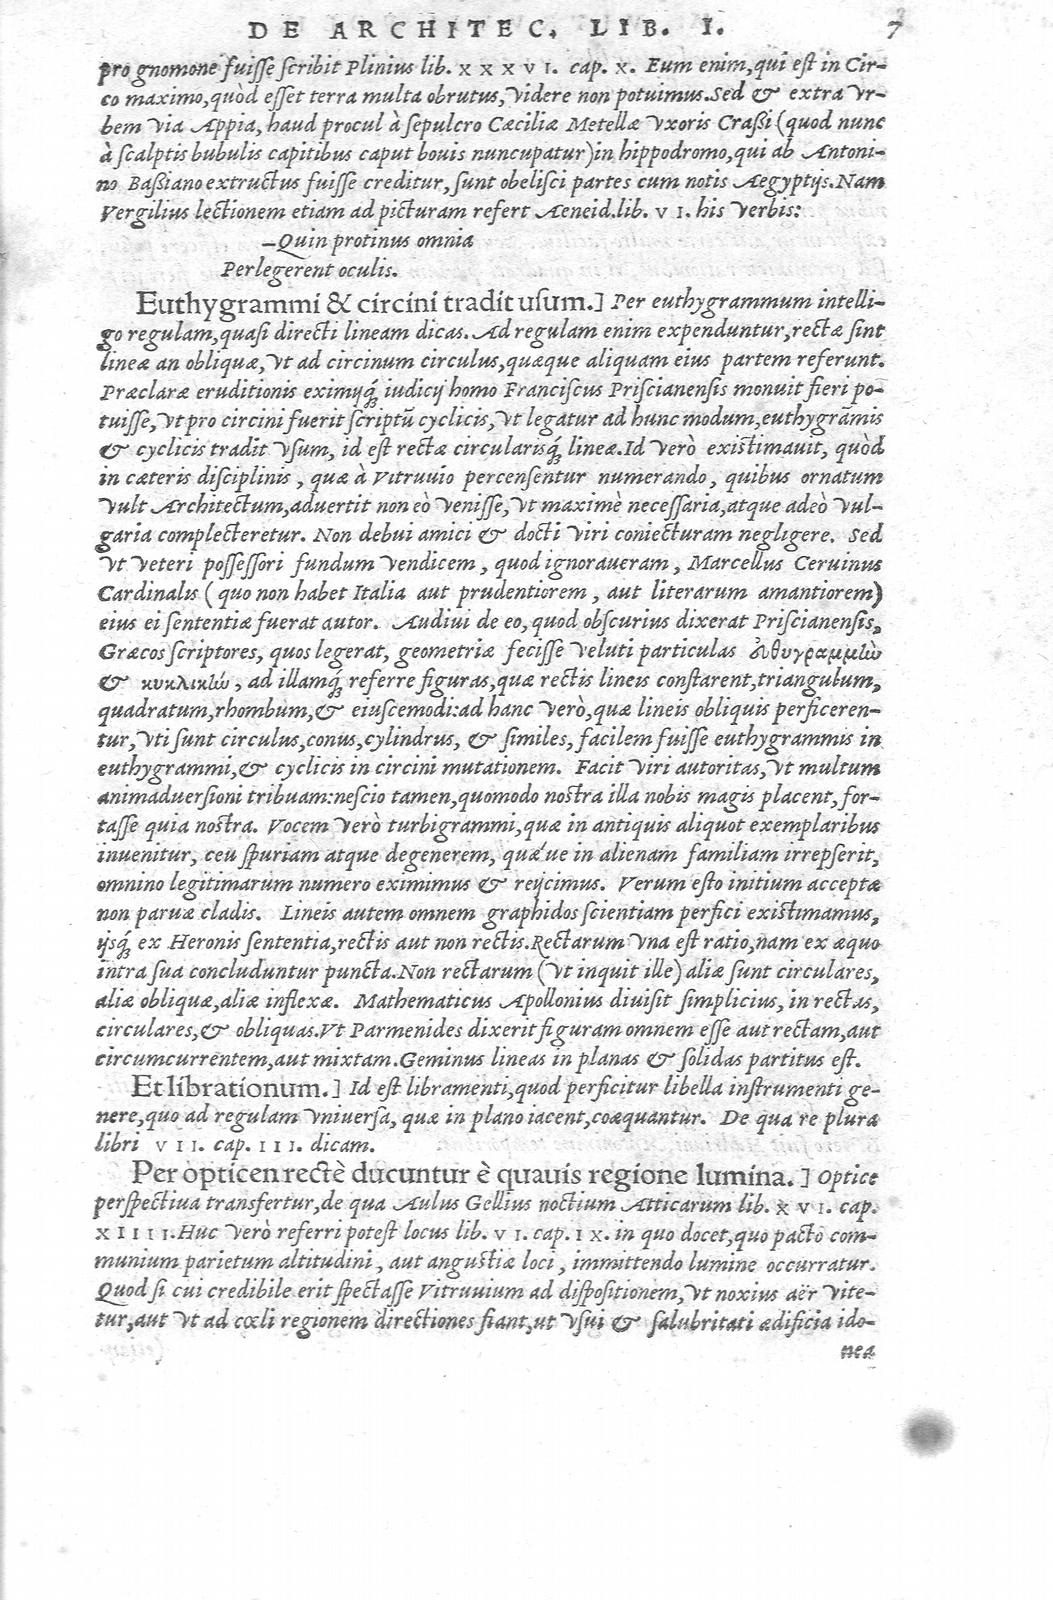 DE ARCHITEC. LIB. I. 7
pro gnomone fuiſſe ſcribit Plinius lib. XXXVI. cap. X. Eum enim, qui eſt in Cir-
co maximo, quòd eſſet terra multa obrutus, videre non potuimus. Sed & extra vr-
bem via Appia, haud procul à ſepulcro Cæciliæ Metellæ vxoris Craßi (quod nunc
à ſcalptis bubulis capitibus caput bouis nuncupatur) in hippodromo, qui ab Antoni-
no Baßiano extructus fuiſſe creditur, ſunt obeliſci partes cum notis Aegyptijs. Nam
Vergilius lectionem etiam ad picturam refert Aeneid. lib. VI. his verbis:
—Quin protinus omnia
Perlegerent oculis.
Euthygrammi & circini tradit uſum.] Per euthygrammum intelli-
go regulam, quaſi directi lineam dicas. Ad regulam enim expenduntur, rectæ ſint
lineæ an obliquæ, vt ad circinum circulus, quæque aliquam eius partem referunt.
Præclaræ eruditionis eximijq́; iudicij homo Franciſcus Priſcianenſis monuit fieri po-
tuiſſe, vt pro circini fuerit ſcriptũ cyclicis, vt legatur ad hunc modum, euthygrãmis
& cyclicis tradit vſum, id eſt rectæ circularisq́; lineæ. Id verò existimauit, quòd
in cæteris diſciplinis, quæ à Vitruuio percenſentur numerando, quibus ornatum
vult Architectum, aduertit non eò veniſſe, vt maximè neceſſaria, atque adeò vul-
garia complecteretur. Non debui amici & docti viri coniecturam negligere. Sed
vt veteri poſſeſſori fundum vendicem, quod ignoraueram, Marcellus Ceruinus
Cardinalis (quo non habet Italia aut prudentiorem, aut literarum amantiorem)
eius ei ſententiæ fuerat autor. Audiui de eo, quod obſcurius dixerat Priſcianenſis,
Græcos ſcriptores, quos legerat, geometriæ feciſſe veluti particulas ἐυθυγραμμικὼ
& κυκλικὼ, ad illamq́; referre figuras, quæ rectis lineis conſtarent, triangulum,
quadratum, rhombum, & eiuſcemodi: ad hanc verò, quæ lineis obliquis perficeren-
tur, vti ſunt circulus, conus, cylindrus, & ſimiles, facilem fuiſſe euthygrammis in
euthygrammi, & cyclicis in circini mutationem. Facit viri autoritas, vt multum
animaduerſioni tribuam: neſcio tamen, quomodo noſtra illa nobis magis placent, for-
taſſe quia noſtra. Vocem verò turbigrammi, quæ in antiquis aliquot exemplaribus
inuenitur, ceu ſpuriam atque degenerem, quæ'ue in alienam familiam irrepſerit,
omnino legitimarum numero eximimus & reijcimus. Verum eſto initium acceptæ
non paruæ cladis. Lineis autem omnem graphidos ſcientiam perfici existimamus,
ijsq́; ex Heronis ſententia, rectis aut non rectis. Rectarum vna eſt ratio, nam ex æquo
intra ſua concluduntur puncta. Non rectarum (vt inquit ille) aliæ ſunt circulares,
aliæ obliquæ, aliæ inflexæ. Mathematicus Apollonius diuiſit ſimplicius, in rectas,
circulares, & obliquas. Vt Parmenides dixerit figuram omnem eſſe aut rectam, aut
circumcurrentem, aut mixtam. Geminus lineas in planas & ſolidas partitus eſt.
Et librationum.] Id eſt libramenti, quod perficitur libella inſtrumenti ge-
nere, quo ad regulam vniuerſa, quæ in plano iacent, coæquantur. De qua re plura
libri VII. cap. III. dicam.
Per opticen rectè ducuntur è quauis regione lumina.] Optice
perſpectiua transfertur, de qua Aulus Gellius noctium Atticarum lib. XVI. cap.
XIIII. Huc verò referri poteſt locus lib. VI. cap. IX. in quo docet, quo pacto com-
munium parietum altitudini, aut anguſtiæ loci, immittendo lumine occurratur.
Quod ſi cui credibile erit ſpectaſſe Vitruuium ad diſpoſitionem, vt noxius aër vite-
tur, aut vt ad cœli regionem directiones fiant, ut vſui & ſalubritati ædificia ido-
nea